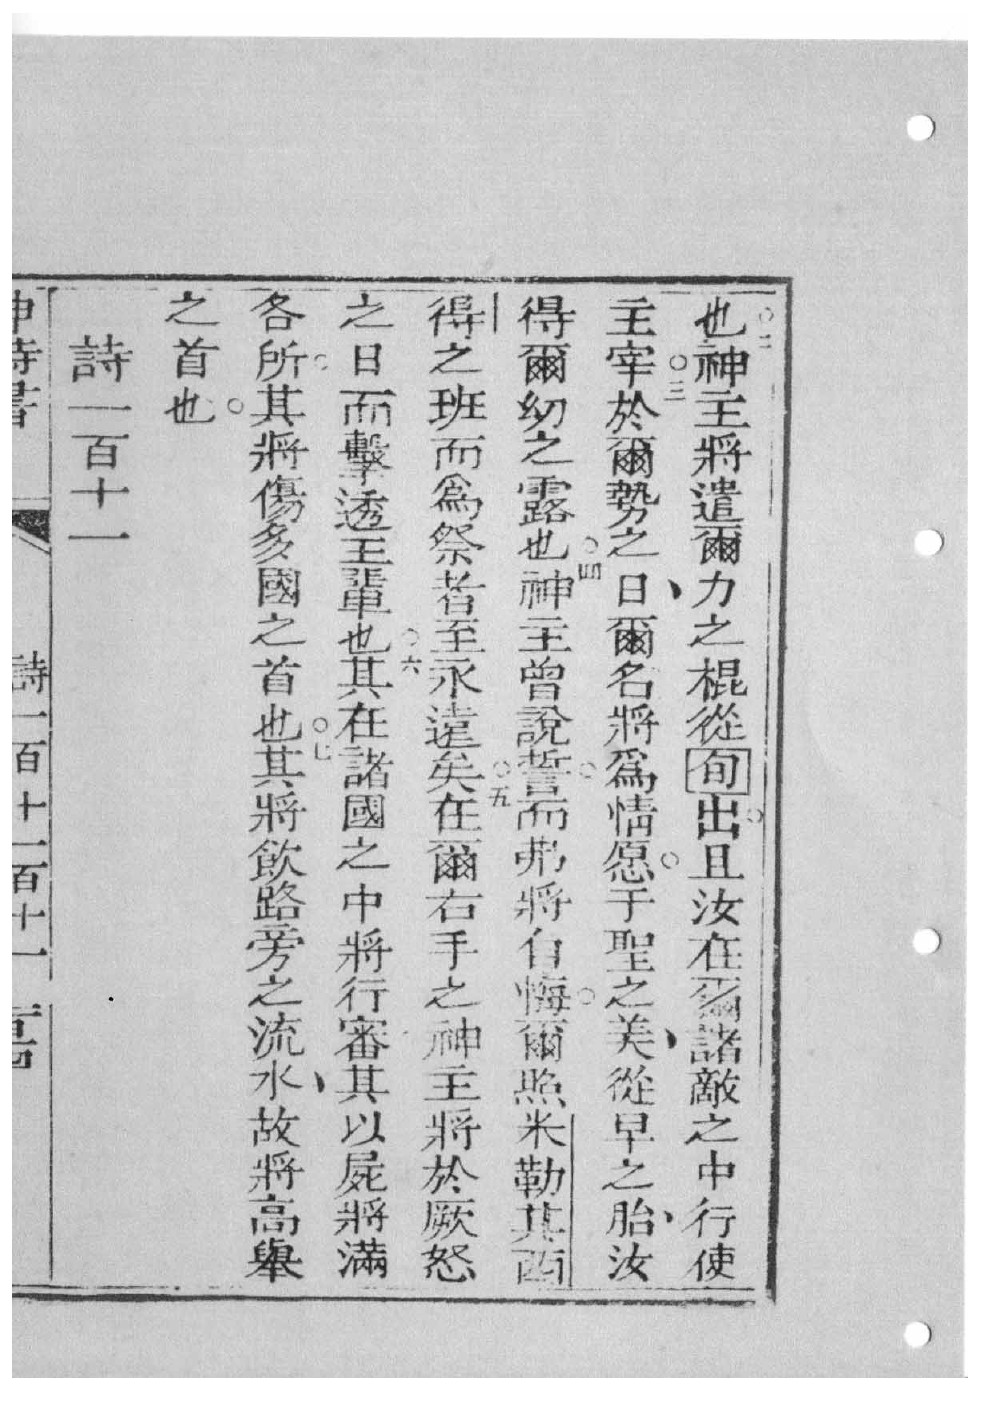 也○二神主將遣爾力之棍從旬出○且汝在爾諸敵之中行使
主宰○三於爾勢之日、爾名將爲情愿○于聖之美、從早之胎、汝
得爾幼之露也○四神主曾說誓○而弗將自悔○爾照米勒其西
得之班而爲祭者至永遠矣○五在爾右手之神主將於厥怒
之日而擊透王輩也○六其在諸國之中將行審其以屍將滿
各所○其將傷多國之首也○七其將飲路旁之流水、故將高舉
之首也○
詩一百十一
神詩書
詩一百十一百十一